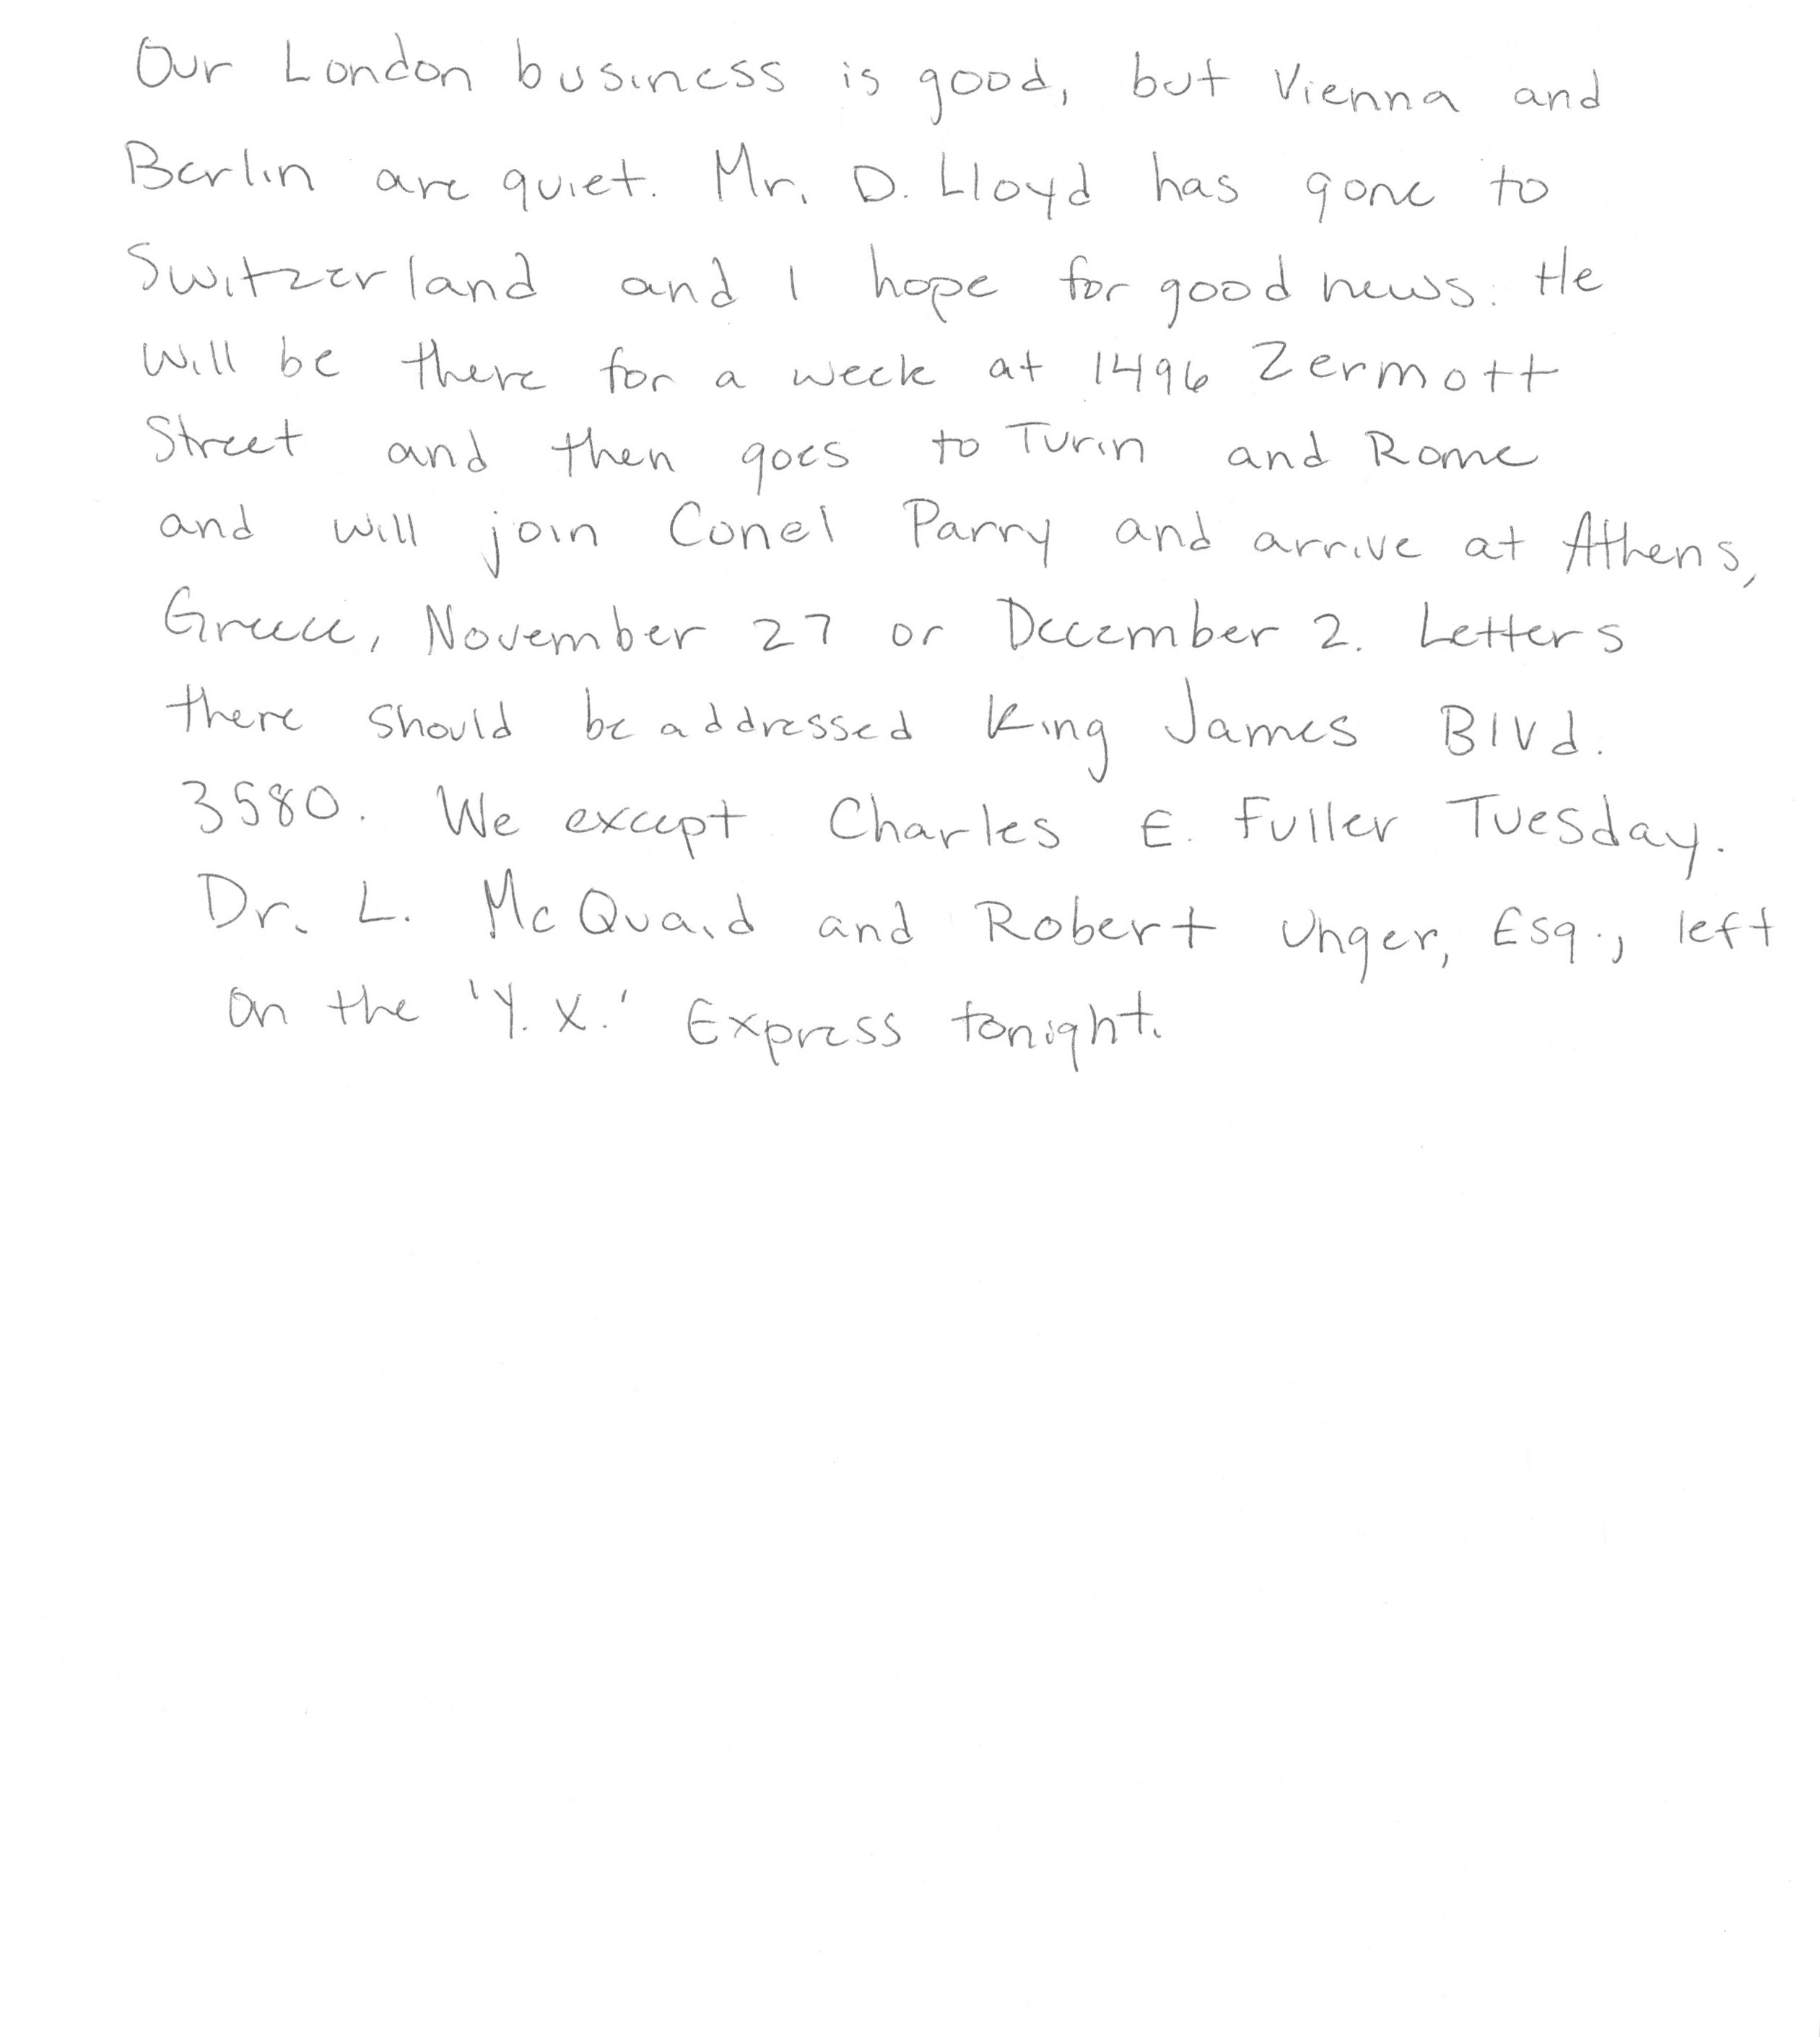 Our London business is good, but Vienna and
Berlin are quiet. Mr. D. Lloyd has gone to
Switzerland and I hope for good news. He
will be there for a week at 1496 Zermott
Street and then goes to Turin and Rome
and will join Conel Parry and arrive at Athens,
Greece, November 27 or December 2. Letters
there should be addressed King James Blvd.
3580. We except Charles E. Fuller Tuesday.
Dr. L. McQuaid and Robert Unger, Esq., left
on the 'Y.X.' Express tonight.